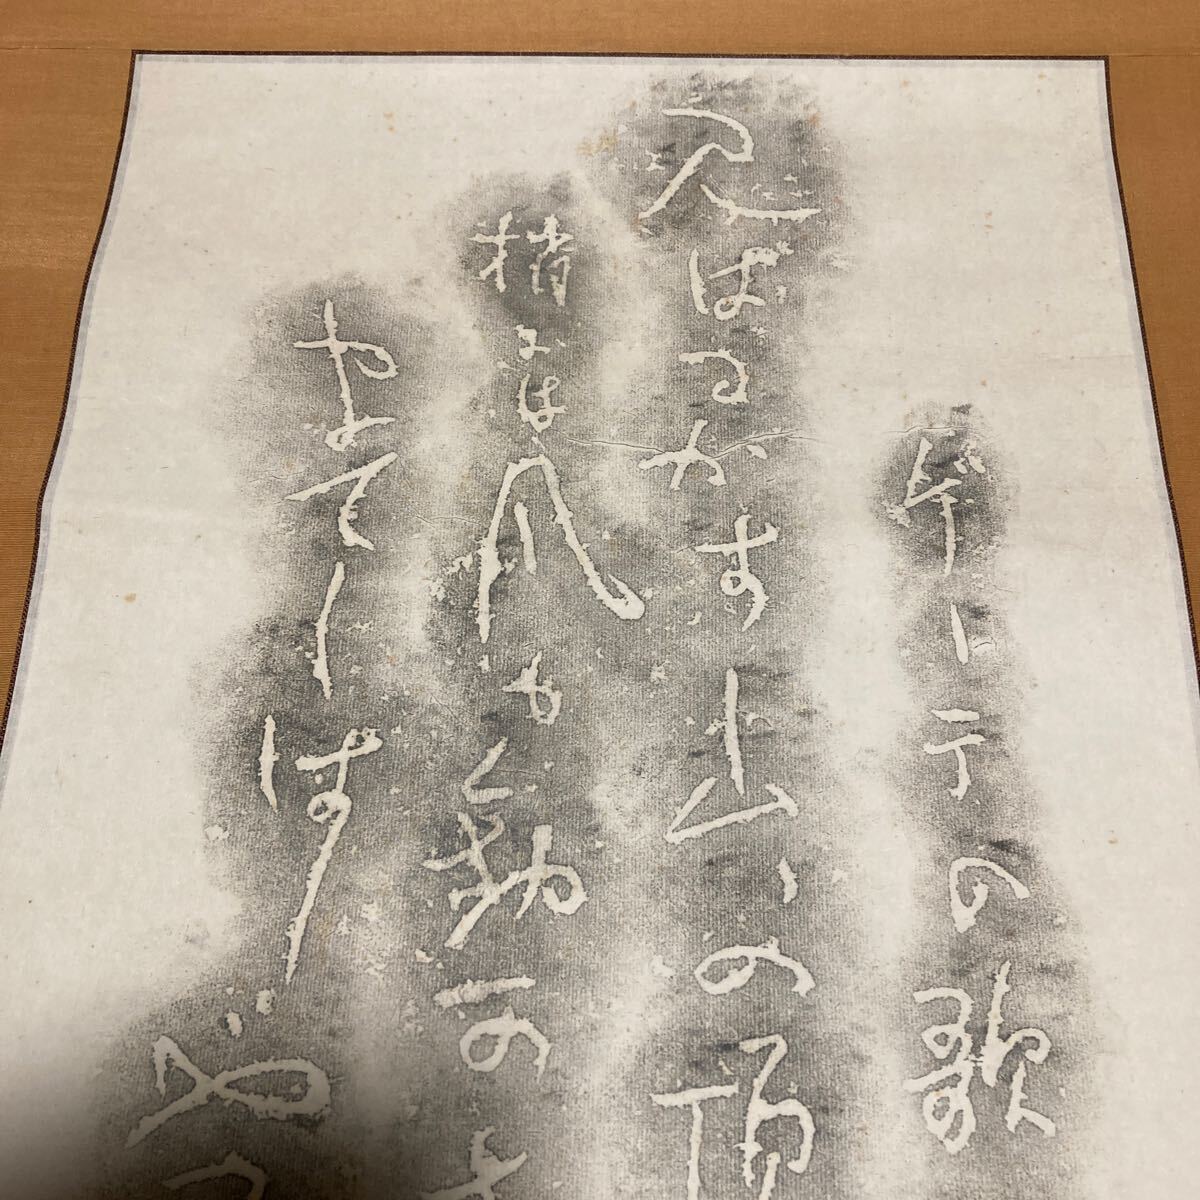 ゲーテの歌
見はるかす山々の頂
梢には風も動かす
まてしはしや